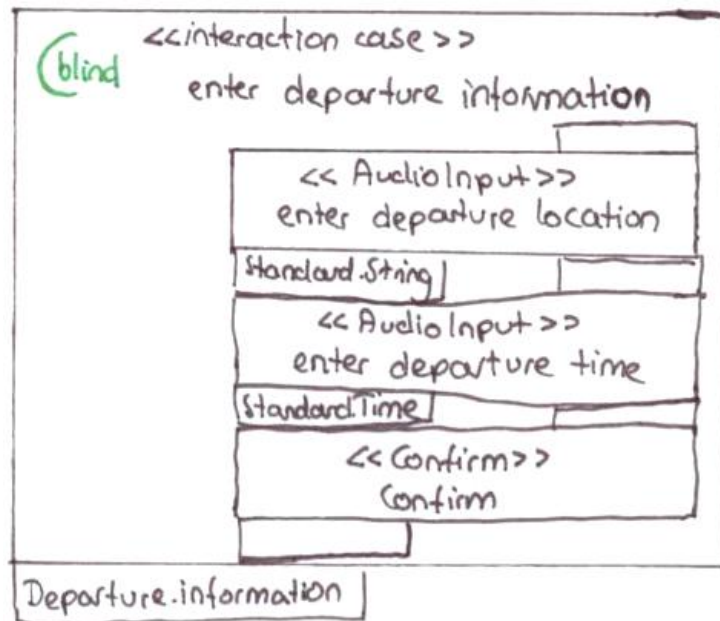 <<interaction case>>
blind
enter departure information
<<AudioInput>>
enter departure location
Standard.String
<<AudioInput>>
enter departure time
Standard.Time
<<Confirm>>
Confirm
Departure.information